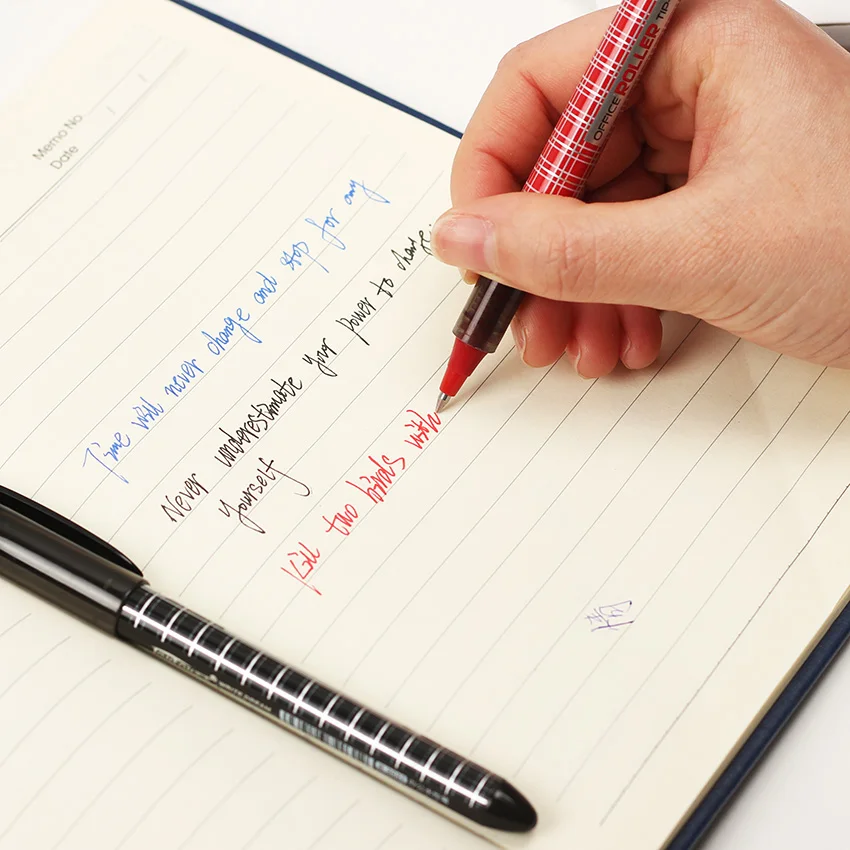 Memo No
Date
Time will never change and stop for any
Never underestimate your power to change
yourself
Kill two birds with
OFFICE ROLLER TIP